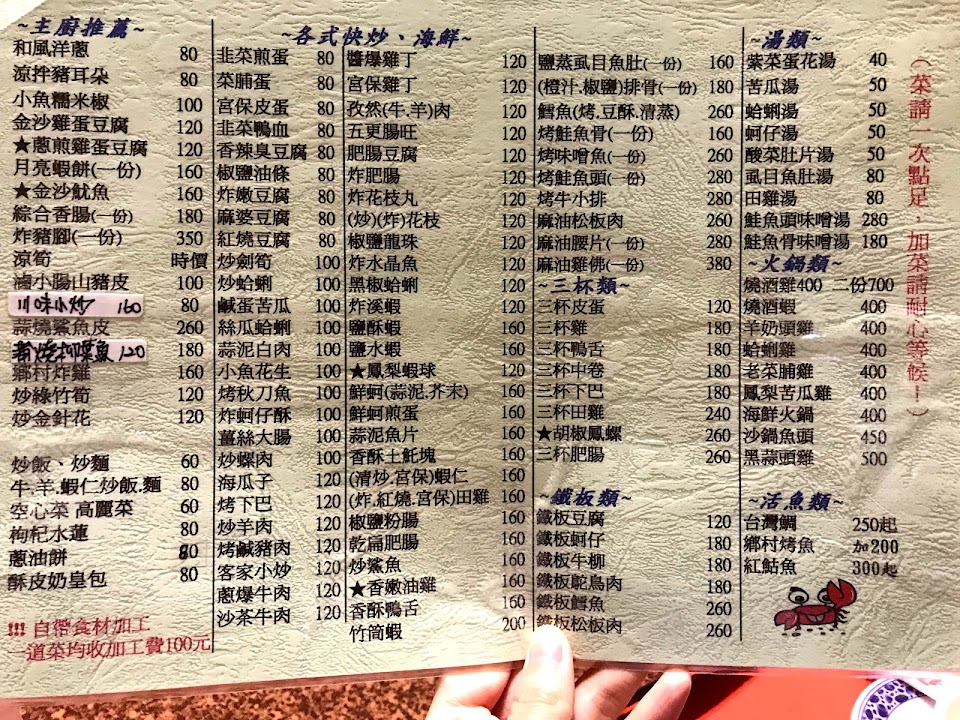 ~主廚推薦~
和風洋蔥 80
涼拌豬耳朵 80
小魚糯米椒 100
金沙雞蛋豆腐 120
★蔥煎雞蛋豆腐 120
月亮蝦餅(一份) 160
★金沙魷魚 160
綜合香腸(一份) 180
炸豬腳(一份) 350
涼筍 時價
滷小腸山豬皮 100
川味小炒 160 80
蒜燒鯊魚皮 260
柳葉魚 120 180
鄉村炸雞 160
炒綠竹筍 120
炒金針花 120
炒飯、炒麵 60
牛.羊.蝦仁炒飯.麵 80
空心菜 高麗菜 60
枸杞水蓮 80
蔥油餅 80
酥皮奶皇包 80
!!! 自帶食材加工
一道菜均收加工費100元
~各式快炒、海鮮~
韭菜煎蛋 80
菜脯蛋 80
宮保皮蛋 80
韭菜鴨血 80
香辣臭豆腐 80
椒鹽油條 80
炸嫩豆腐 80
麻婆豆腐 80
紅燒豆腐 80
炒劍筍 100
炒蛤蜊 100
鹹蛋苦瓜 100
絲瓜蛤蜊 100
蒜泥白肉 100
小魚花生 100
烤秋刀魚 100
炸蚵仔酥 100
薑絲大腸 100
炒螺肉 100
海瓜子 120
烤下巴 120
炒羊肉 120
烤鹹豬肉 120
客家小炒 120
蔥爆牛肉 120
沙茶牛肉 120
醬爆雞丁 120
宮保雞丁 120
孜然(牛.羊)肉 120
五更腸旺 120
肥腸豆腐 120
炸肥腸 120
炸花枝丸 120
(炒)(炸)花枝 120
椒鹽龍珠 120
炸水晶魚 120
黑椒蛤蜊 120
炸溪蝦 120
鹽酥蝦 160
鹽水蝦 160
★鳳梨蝦球 120
鮮蚵(蒜泥.芥末) 160
鮮蚵煎蛋 160
蒜泥魚片 160
香酥土魠塊 160
(清炒.宮保)蝦仁 160
(炸.紅燒.宮保)田雞 160
椒鹽粉腸 160
乾扁肥腸 160
炒鯊魚 160
★香嫩油雞 160
香酥鴨舌 160
竹筒蝦 200
鹽蒸虱目魚肚(一份) 160
(橙汁.椒鹽)排骨(一份) 180
鱈魚(烤.豆酥.清蒸) 260
烤鮭魚骨(一份) 160
烤味噌魚(一份) 260
烤鮭魚頭(一份) 260
烤牛小排 280
麻油松板肉 260
麻油腰片(一份) 280
麻油雞佛(一份) 380
~三杯類~
三杯皮蛋 120
三杯雞 180
三杯鴨舌 180
三杯中卷 180
三杯下巴 180
三杯田雞 240
★胡椒鳳螺 260
三杯肥腸 260
~鐵板類~
鐵板豆腐 120
鐵板蚵仔 180
鐵板牛柳 180
鐵板鴕鳥肉 180
鐵板鱈魚 260
鐵板松板肉 260
~湯類~
紫菜蛋花湯 40
苦瓜湯 50
蛤蜊湯 50
蚵仔湯 50
酸菜肚片湯 50
虱目魚肚湯 80
田雞湯 80
鮭魚頭味噌湯 280
鮭魚骨味噌湯 180
~火鍋類~
燒酒雞400 二份700
燒酒蝦 400
羊奶頭雞 400
蛤蜊雞 400
老菜脯雞 400
鳳梨苦瓜雞 400
海鮮火鍋 400
沙鍋魚頭 450
黑蒜頭雞 500
~活魚類~
台灣鯛 250起
鄉村烤魚 加200
紅鮕魚 300起
(菜請一次點足,加菜請耐心等候!)